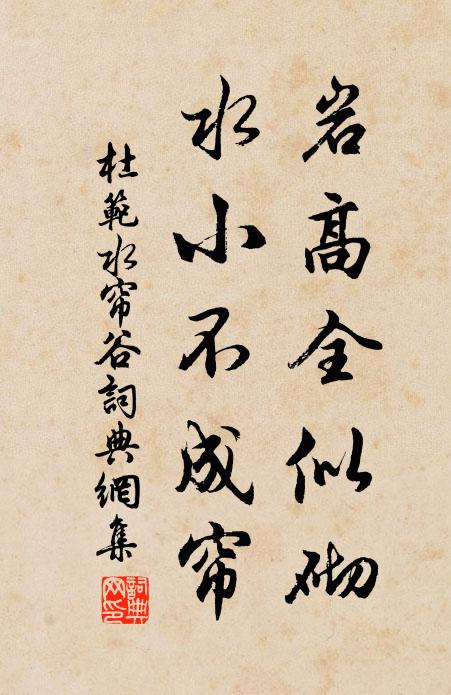 岩高全似砌
水小不成帘
杜範水帘谷詞典網集
詞典网印